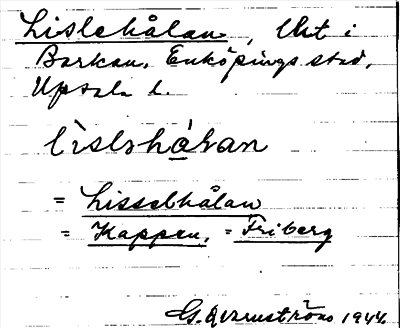 Lislehålan, Ukt i
Borkan, Enköpings stad,
Upsala l.
lislshålan
= Lisselhålan
= Kappen, = Friberg
G. 1944